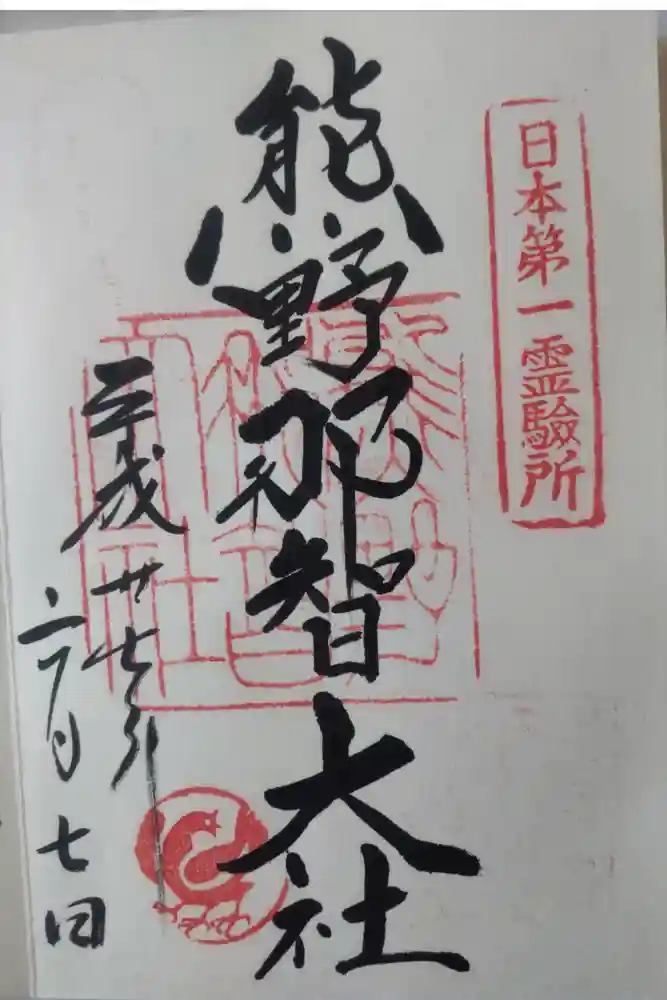 日本第一霊験所
熊野那智大社
平成廿七年
二月七日